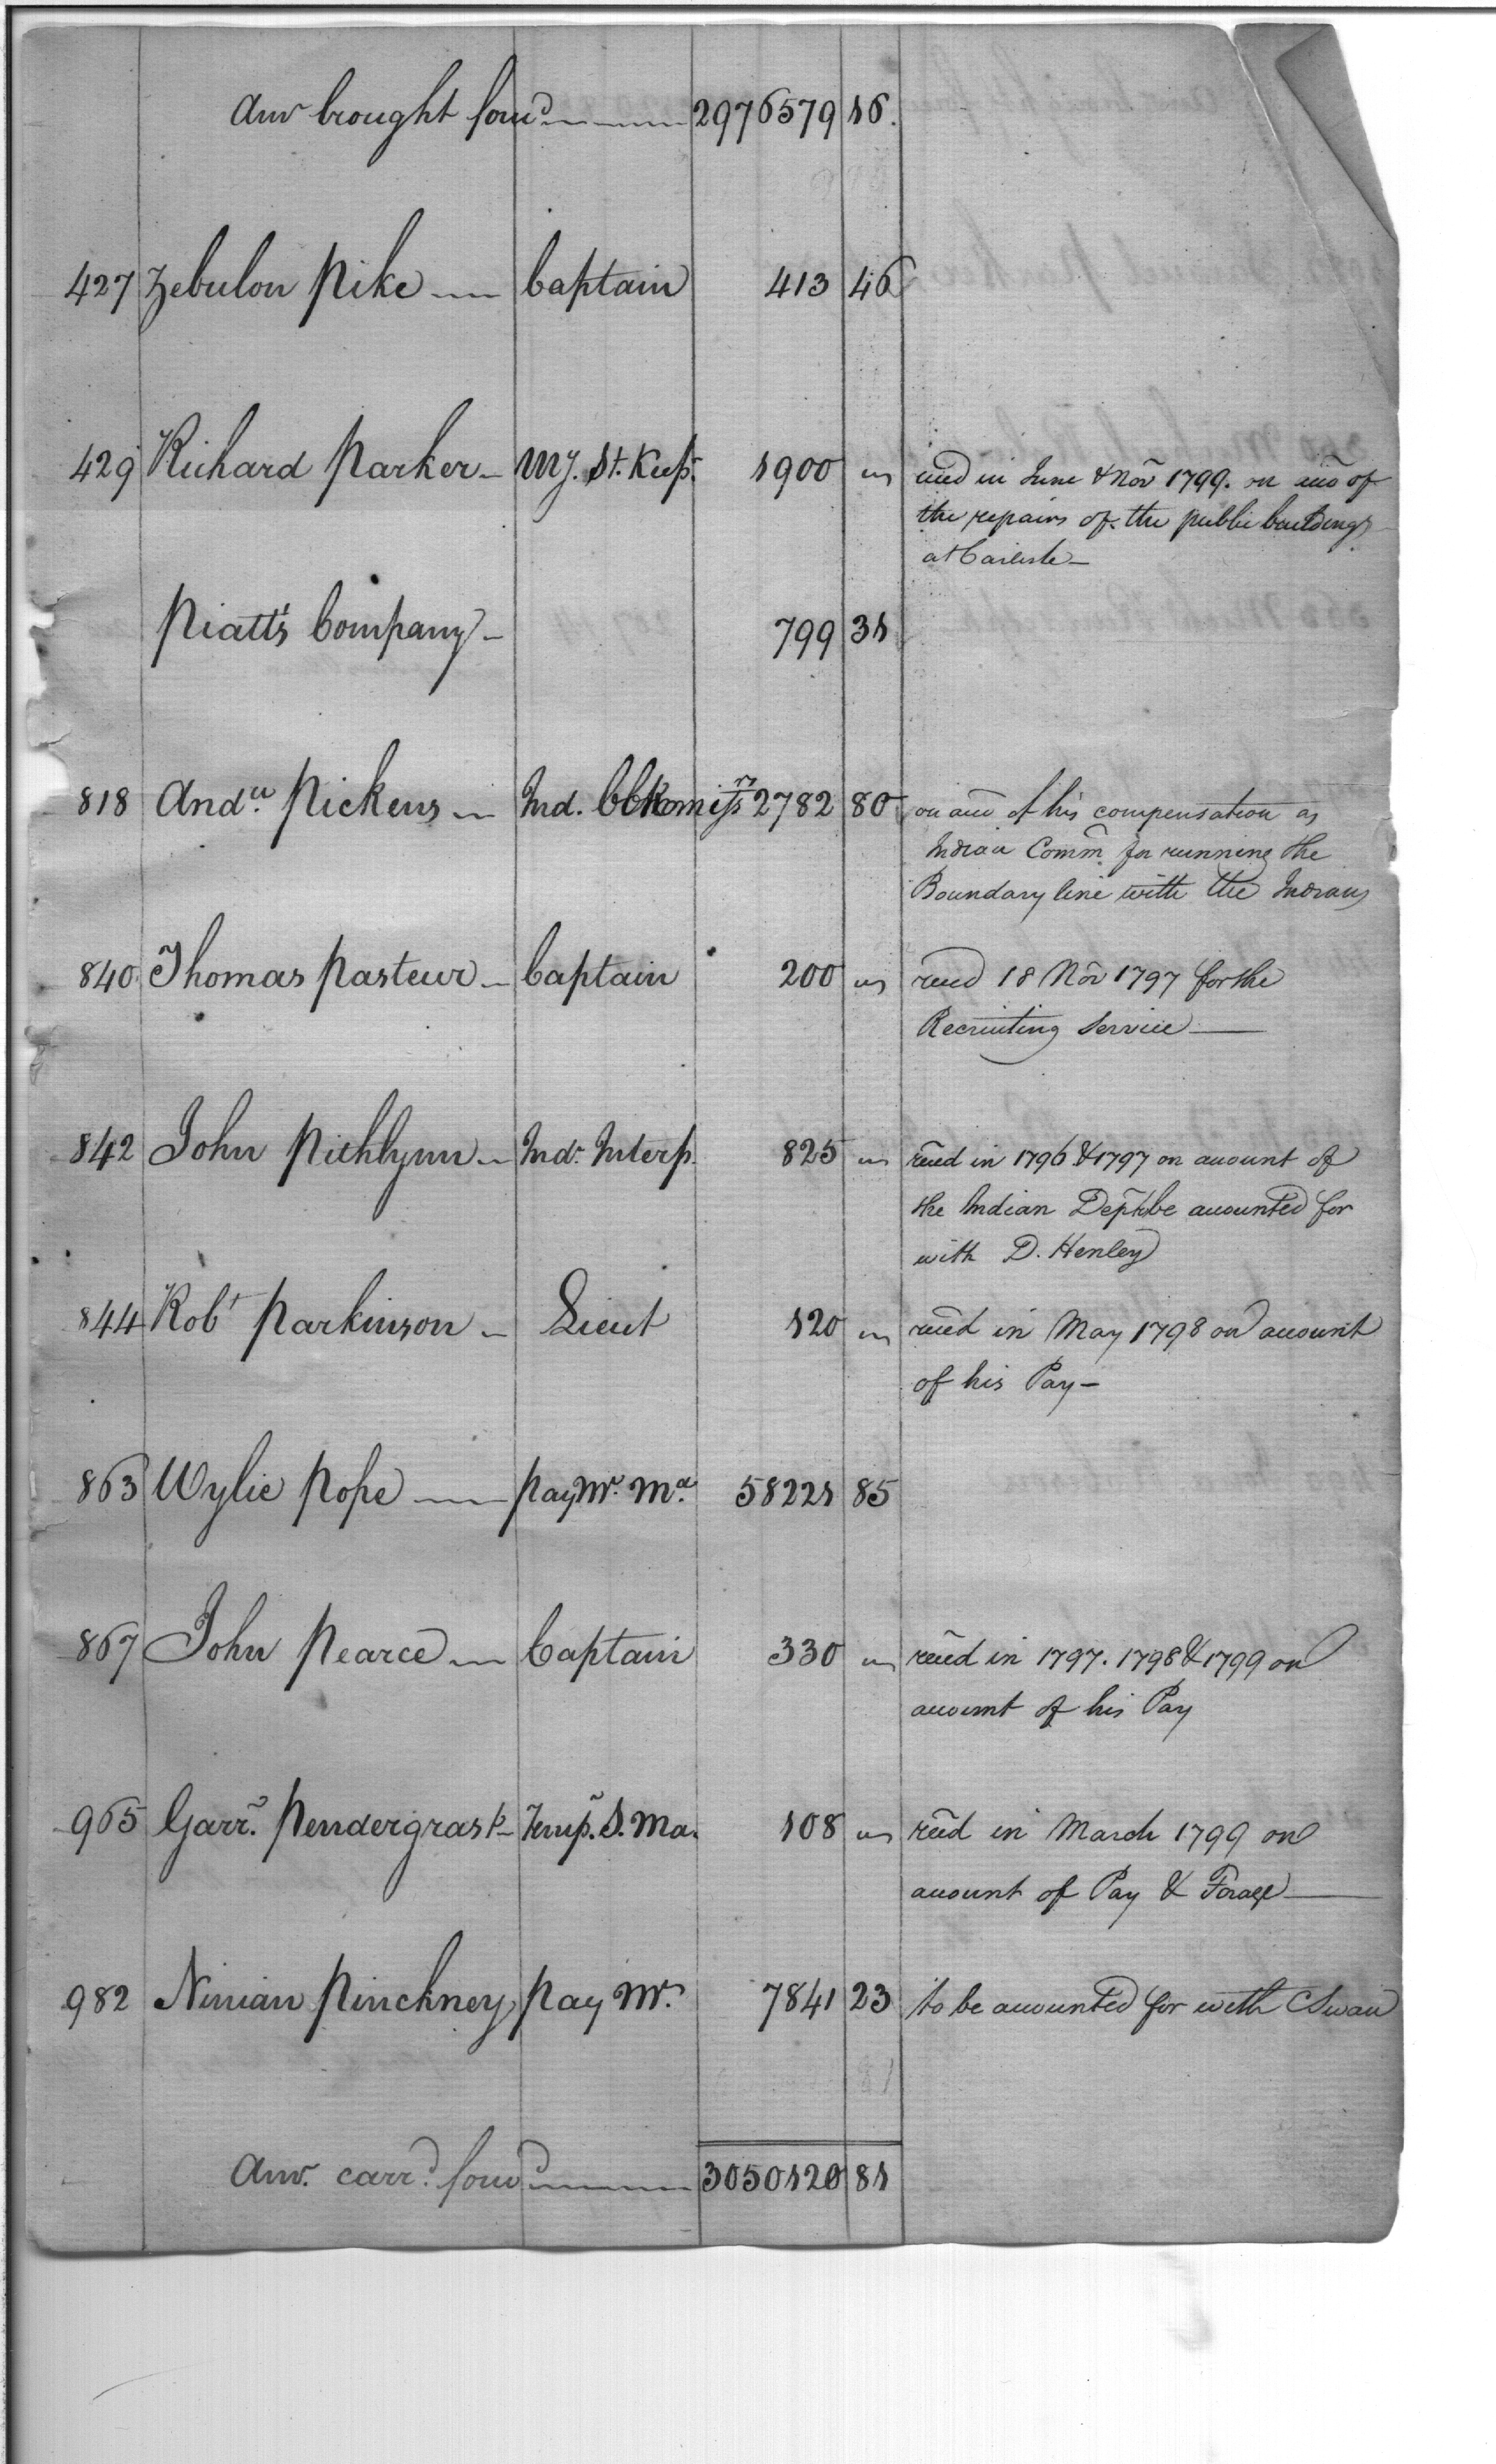 Amt brought forwd 2976579 16.
427 Zebulon Pike Captain 413 46
429 Richard Parker My. St. Keepr. 1900 " recd in June & Nov 1799. on acco of
the repairs of the public buildings
at Carlisle
Piatt's Company 799 31
818 Andw. Pickens Ind. Commissr 2782 80 on acco of his compensation as
Indian Commr for running the
Boundary line with the Indians
840 Thomas Pasteur Captain 200 " recd 18 Nov 1797 for the
Recruiting Service
842 John Pichlynn Indn. Interp. 825 " recd in 1796 & 1797 on account of
the Indian Dept be accounted for
with D. Henley
844 Robt Parkinson Lieut 120 " recd in May 1798 on account
of his Pay
863 Wylie Pope Pay Mr. Ma. 58221 85
867 John Pearce Captain 330 " recd in 1797. 1798 & 1799 on
account of his Pay
965 Garrd. Pendergrast Temp. S. Ma. 108 " recd in March 1799 on
account of Pay & Forage
982 Ninian Pinckney Pay Mr. 7841 23 to be accounted for with C Swan
Amt. carrd. forwd 3050120 81